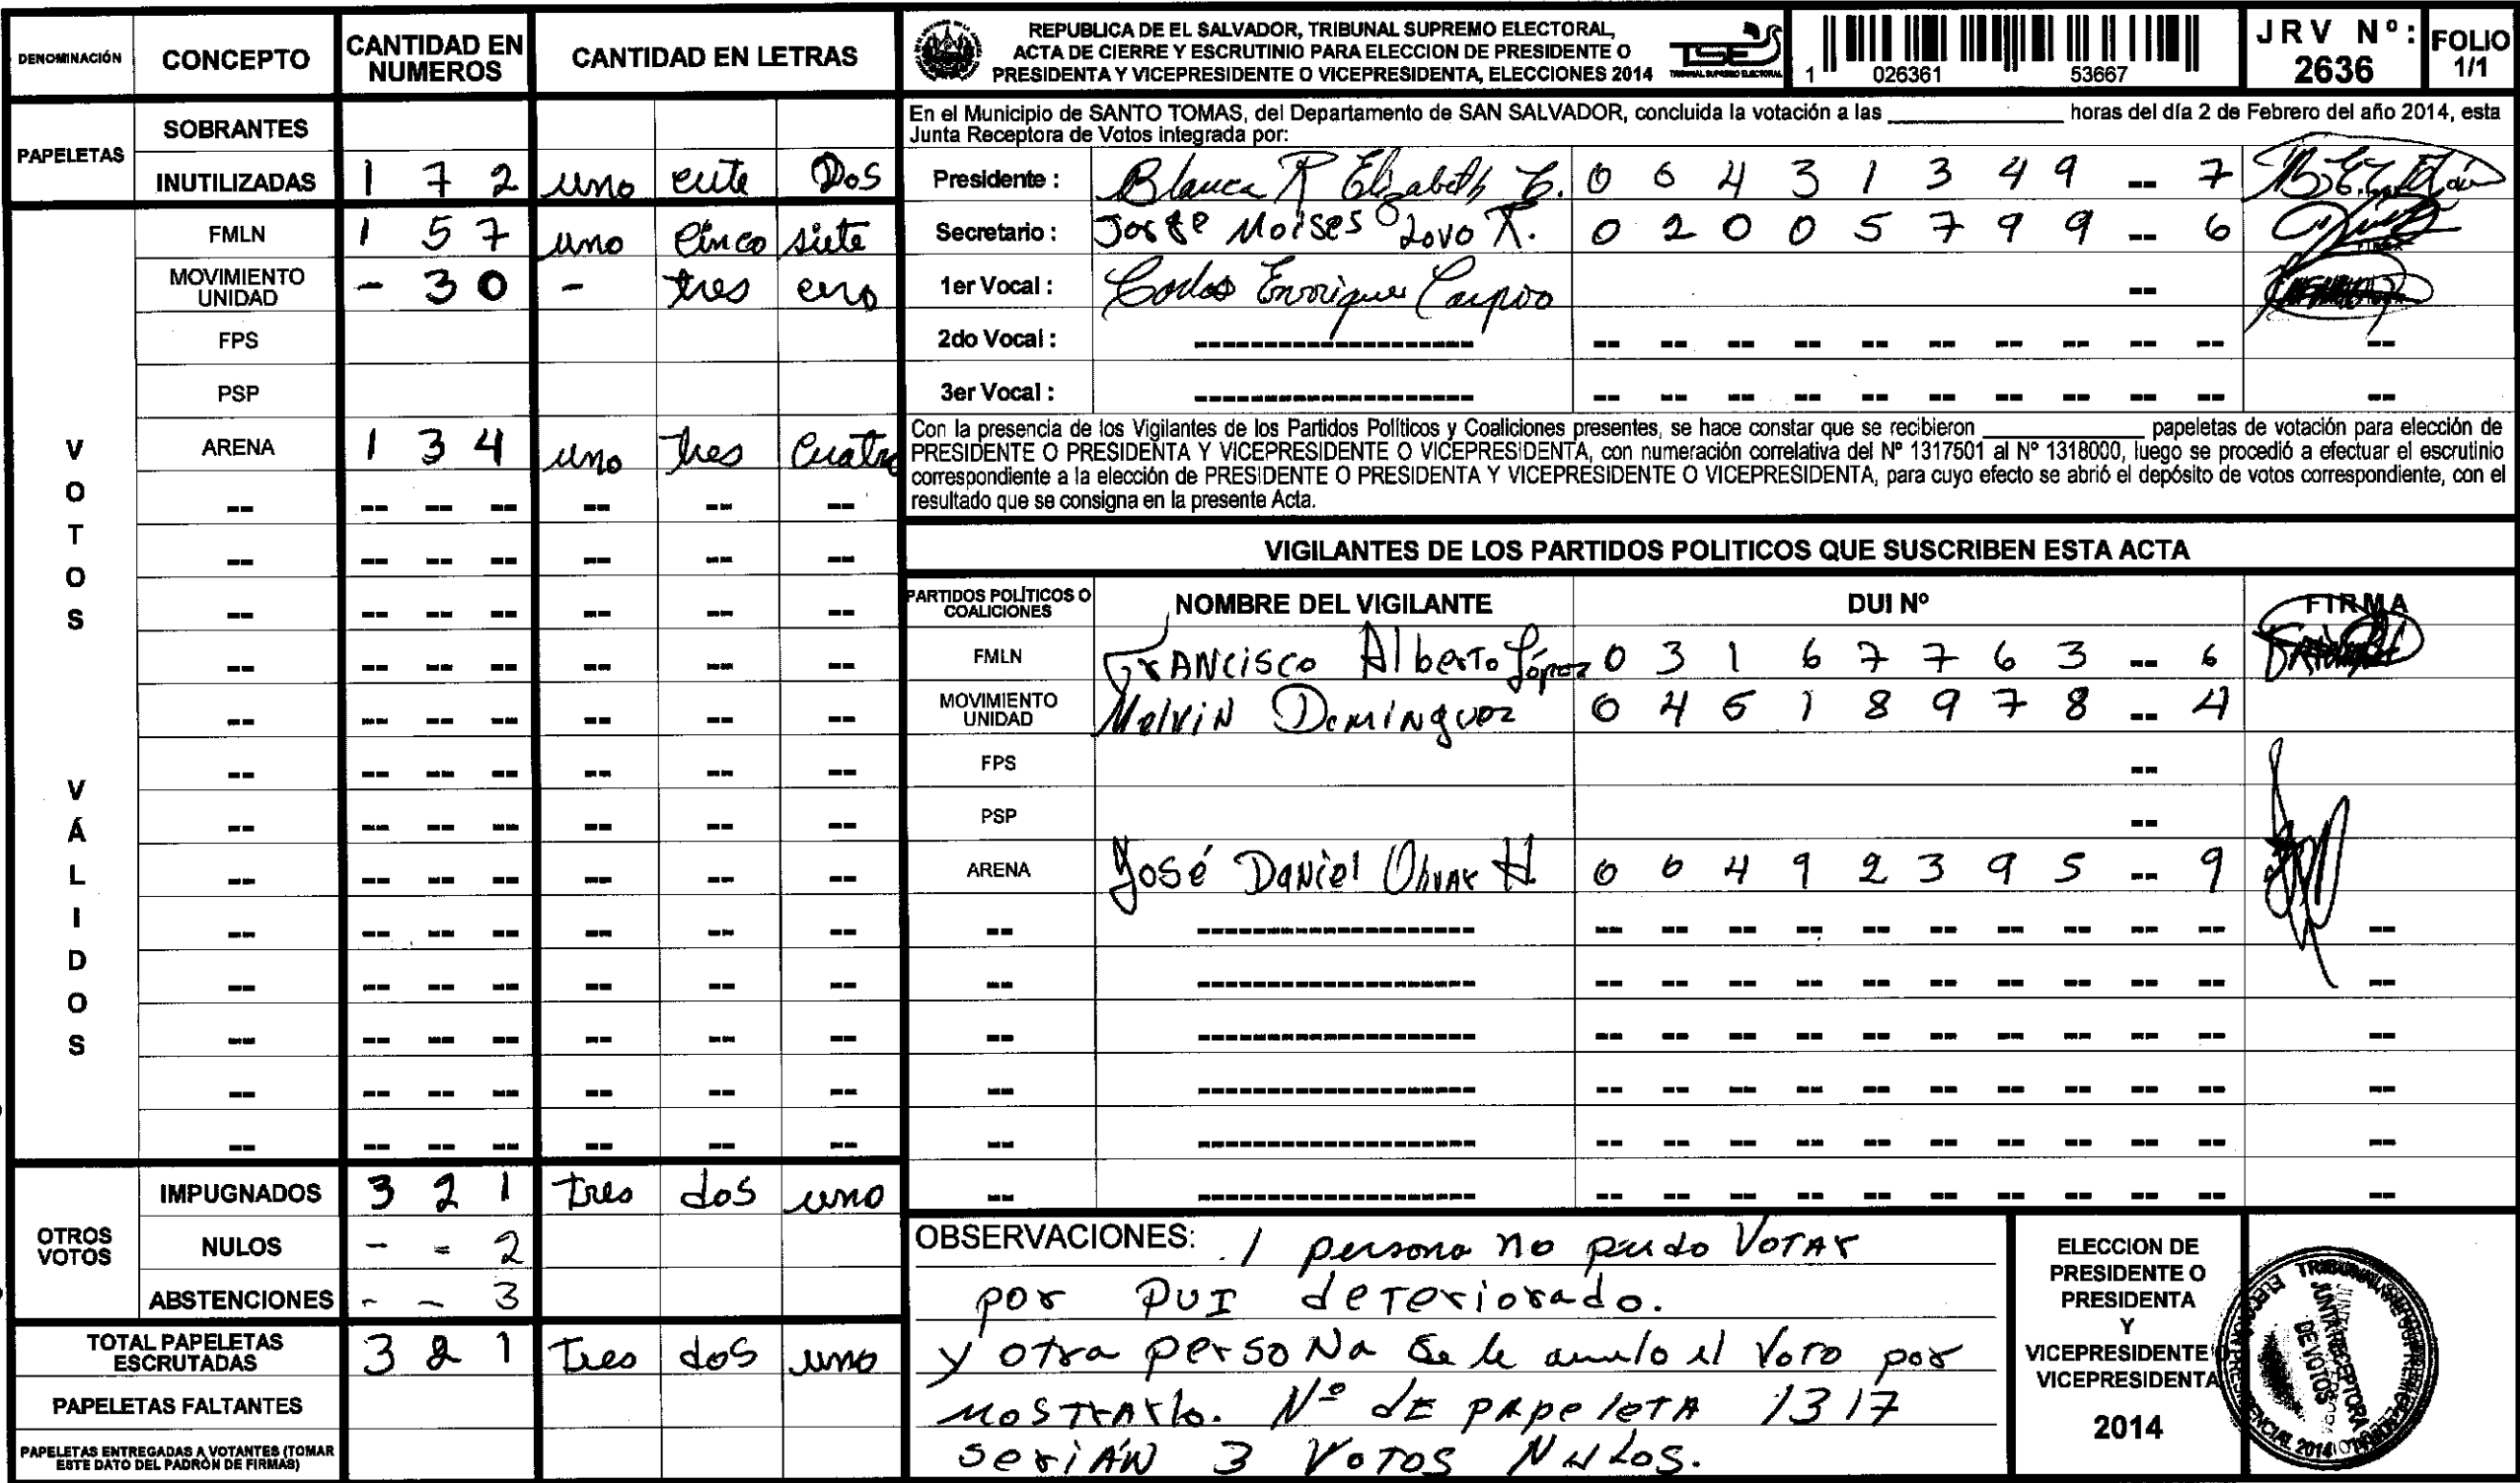 DENOMINACIÓN CONCEPTO CANTIDAD EN NUMEROS CANTIDAD EN LETRAS
PAPELETAS
SOBRANTES
INUTILIZADAS 1 7 2 uno Dos
VOTOS VÁLIDOS
FMLN 1 5 7 uno Cinco siete
MOVIMIENTO UNIDAD - 3 0 - tres cero
FPS
PSP
ARENA 1 3 4 uno tres Cuatro
OTROS VOTOS
IMPUGNADOS 3 2 1 tres dos uno
NULOS - = 2
ABSTENCIONES - - 3
TOTAL PAPELETAS ESCRUTADAS 3 2 1 Tres dos uno
PAPELETAS FALTANTES
PAPELETAS ENTREGADAS A VOTANTES (TOMAR
ESTE DATO DEL PADRÓN DE FIRMAS)
REPUBLICA DE EL SALVADOR, TRIBUNAL SUPREMO ELECTORAL,
ACTA DE CIERRE Y ESCRUTINIO PARA ELECCION DE PRESIDENTE O
PRESIDENTA Y VICEPRESIDENTE O VICEPRESIDENTA, ELECCIONES 2014
TSE
TRIBUNAL SUPREMO ELECTORAL
1 026361 53667
JRV Nº: 2636
FOLIO 1/1
En el Municipio de SANTO TOMAS, del Departamento de SAN SALVADOR, concluida la votación a las ____________ horas del día 2 de Febrero del año 2014, esta
Junta Receptora de Votos integrada por:
Presidente : Blanca R Elizabeth 0 0 4 3 1 3 4 9 -- 7
Secretario : Jorge Moises Lovo R. 0 2 0 0 5 7 9 9 -- 6
1er Vocal : Carlos Enrique Carpio --
2do Vocal :
3er Vocal :
Con la presencia de los Vigilantes de los Partidos Políticos y Coaliciones presentes, se hace constar que se recibieron ____________ papeletas de votación para elección de
PRESIDENTE O PRESIDENTA Y VICEPRESIDENTE O VICEPRESIDENTA, con numeración correlativa del Nº 1317501 al Nº 1318000, luego se procedió a efectuar el escrutinio
correspondiente a la elección de PRESIDENTE O PRESIDENTA Y VICEPRESIDENTE O VICEPRESIDENTA, para cuyo efecto se abrió el depósito de votos correspondiente, con el
resultado que se consigna en la presente Acta.
VIGILANTES DE LOS PARTIDOS POLITICOS QUE SUSCRIBEN ESTA ACTA
PARTIDOS POLÍTICOS O COALICIONES NOMBRE DEL VIGILANTE DUI Nº FIRMA
FMLN FrANcisco AlberTo López 0 3 1 6 7 7 6 3 -- 6
MOVIMIENTO UNIDAD MelviN DomiNguez 0 4 5 1 8 9 7 8 -- 4
FPS --
PSP --
ARENA José DaNiel H. 0 0 4 9 2 3 9 5 -- 9
OBSERVACIONES: 1 persona no pudo VoTAr
por DUI deTeriorado.
y otra persoNa Se le anulo el VoTo por
mosTrArlo. Nº dE pApeleTA 1317
seriÁN 3 VoTos NuLos.
ELECCION DE
PRESIDENTE O
PRESIDENTA
Y
VICEPRESIDENTE O
VICEPRESIDENTA
2014
JUNTA RECEPTORA
DE VOTOS